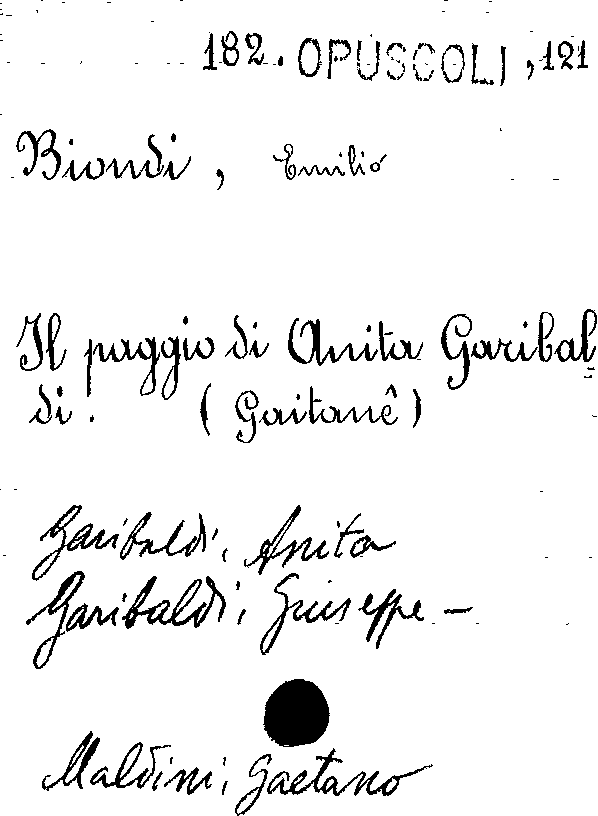 182. OPUSCOLI, 121
Biondi, Emilio
Il paggio di Anita Garibal-
di. (Gaitanê)
Garibaldi, Anita
Garibaldi, Giuseppe -
Maldini, Gaetano